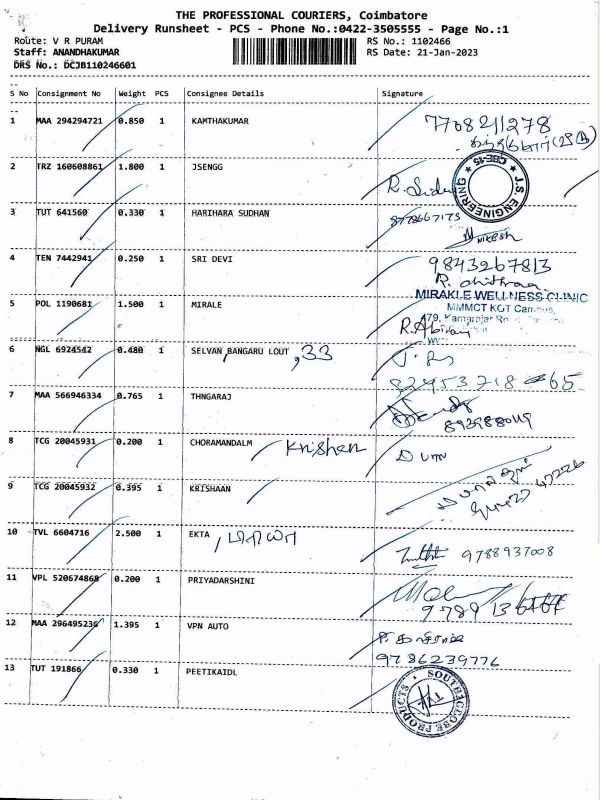 THE PROFESSIONAL COURIERS, Coimbatore
Delivery Runsheet - PCS - Phone No.:0422-3505555 - Page No.:1
Route: V R PURAM RS No.: 1102466
Staff: ANANDHAKUMAR RS Date: 21-Jan-2023
DRS No.: DCJB110246601
S No Consignment No Weight PCS Consignee Details Signature
1 MAA 294294721 0.850 1 KAMTHAKUMAR 7708211278
2 TRZ 160608861 1.800 1 JSENGG
J.S. ENGINEERING CBE-15
3 TUT 641560 0.330 1 HARIHARA SUDHAN 8778667175
4 TEN 7442941 0.250 1 SRI DEVI 9843267813
5 POL 1190681 1.500 1 MIRALE
MIRAKLE WELLNESS CLINIC
MMMCT KGT Campus,
479, Kamarajar Road
R. Abirami
6 NGL 6924542 0.480 1 SELVAN BANGARU LOUT , 33
7 MAA 566946334 0.765 1 THNGARAJ
8 TCG 20045931 0.200 1 CHORAMANDALM Krishen
9 TCG 20045932 0.395 1 KRISHAAN
10 TVL 6604716 2.500 1 EKTA
9788937008
11 VPL 520674868 0.200 1 PRIYADARSHINI
12 MAA 296495236 1.395 1 VPN AUTO
9786239776
13 TUT 191866 0.330 1 PEETIKAIDL
SOUTH GLOBE PRODUCTS